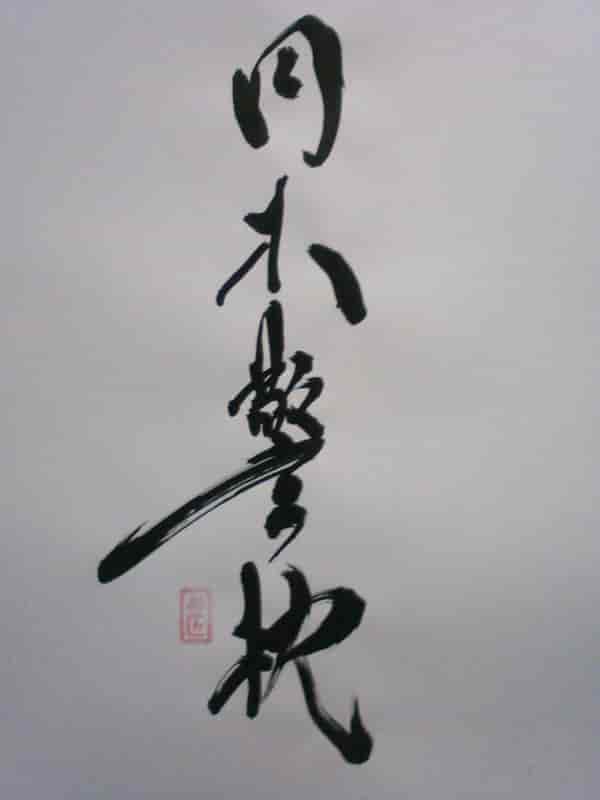 円木警枕